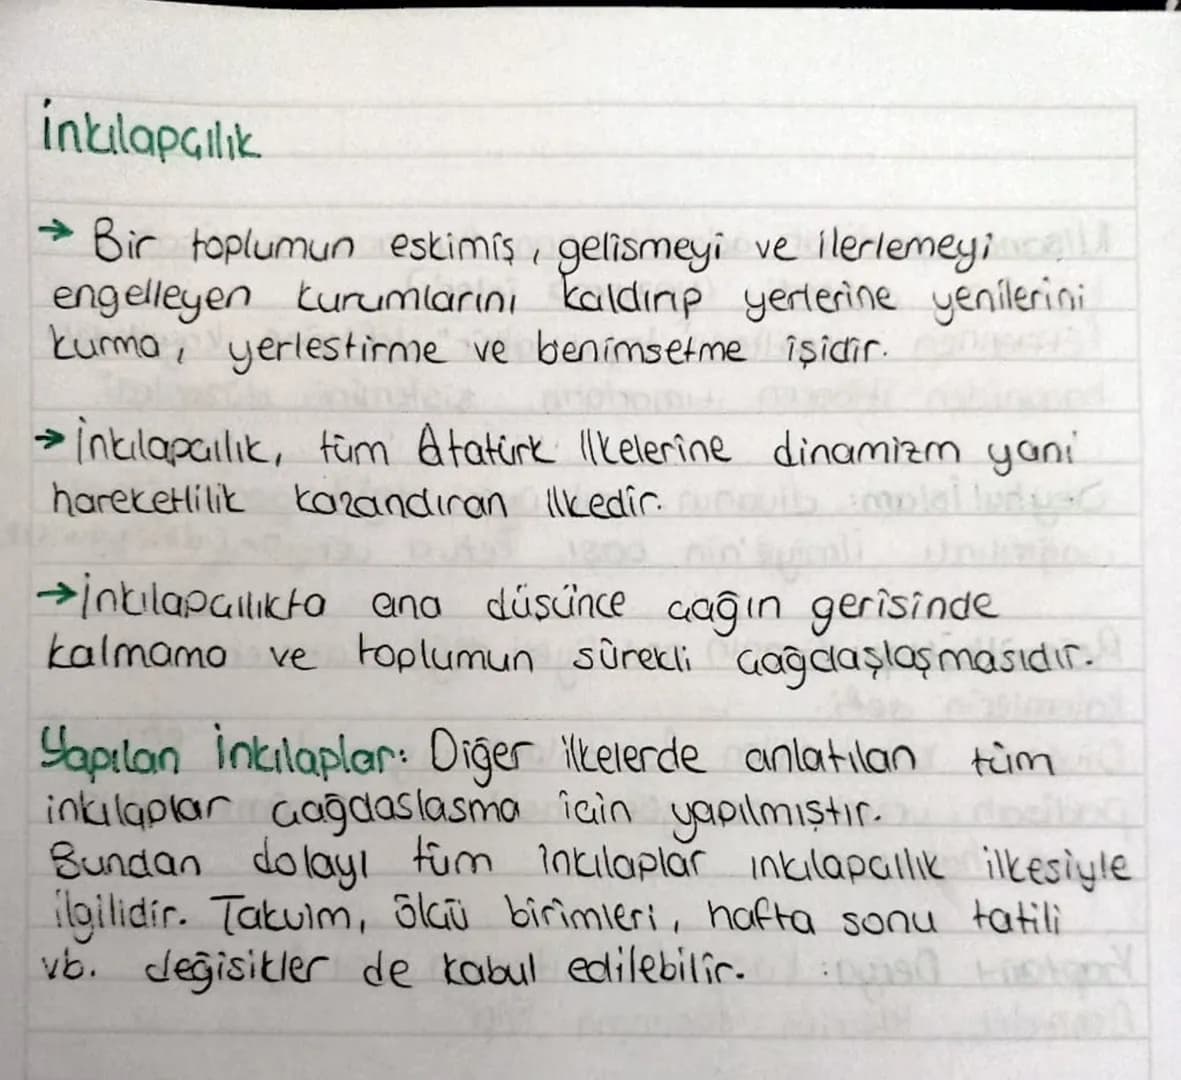 İnkılapçılık
→ Bir toplumun eskimiş, gelişmeyi ve ilerlemeyi
engelleyen kurumlarını kaldırıp yerlerine yenilerini
kurma, yerleştirme ve benimsetme işidir.
→ İnkılapçılık, tüm Atatürk İlkelerine dinamizm yani
hareketlilik kazandıran ilkedir.
→ İnkılapçılıkta ana düşünce çağın gerisinde
kalmama ve toplumun sürekli çağdaşlaşmasıdır.
Yapılan İnkılaplar: Diğer ilkelerde anlatılan tüm
inkılaplar çağdaslasma için yapılmıştır.
Bundan dolayı tüm inkılaplar inkılapçılık ilkesiyle
ilgilidir. Takvim, ölçü birimleri, hafta sonu tatili
vb. değisikler de kabul edilebilir.